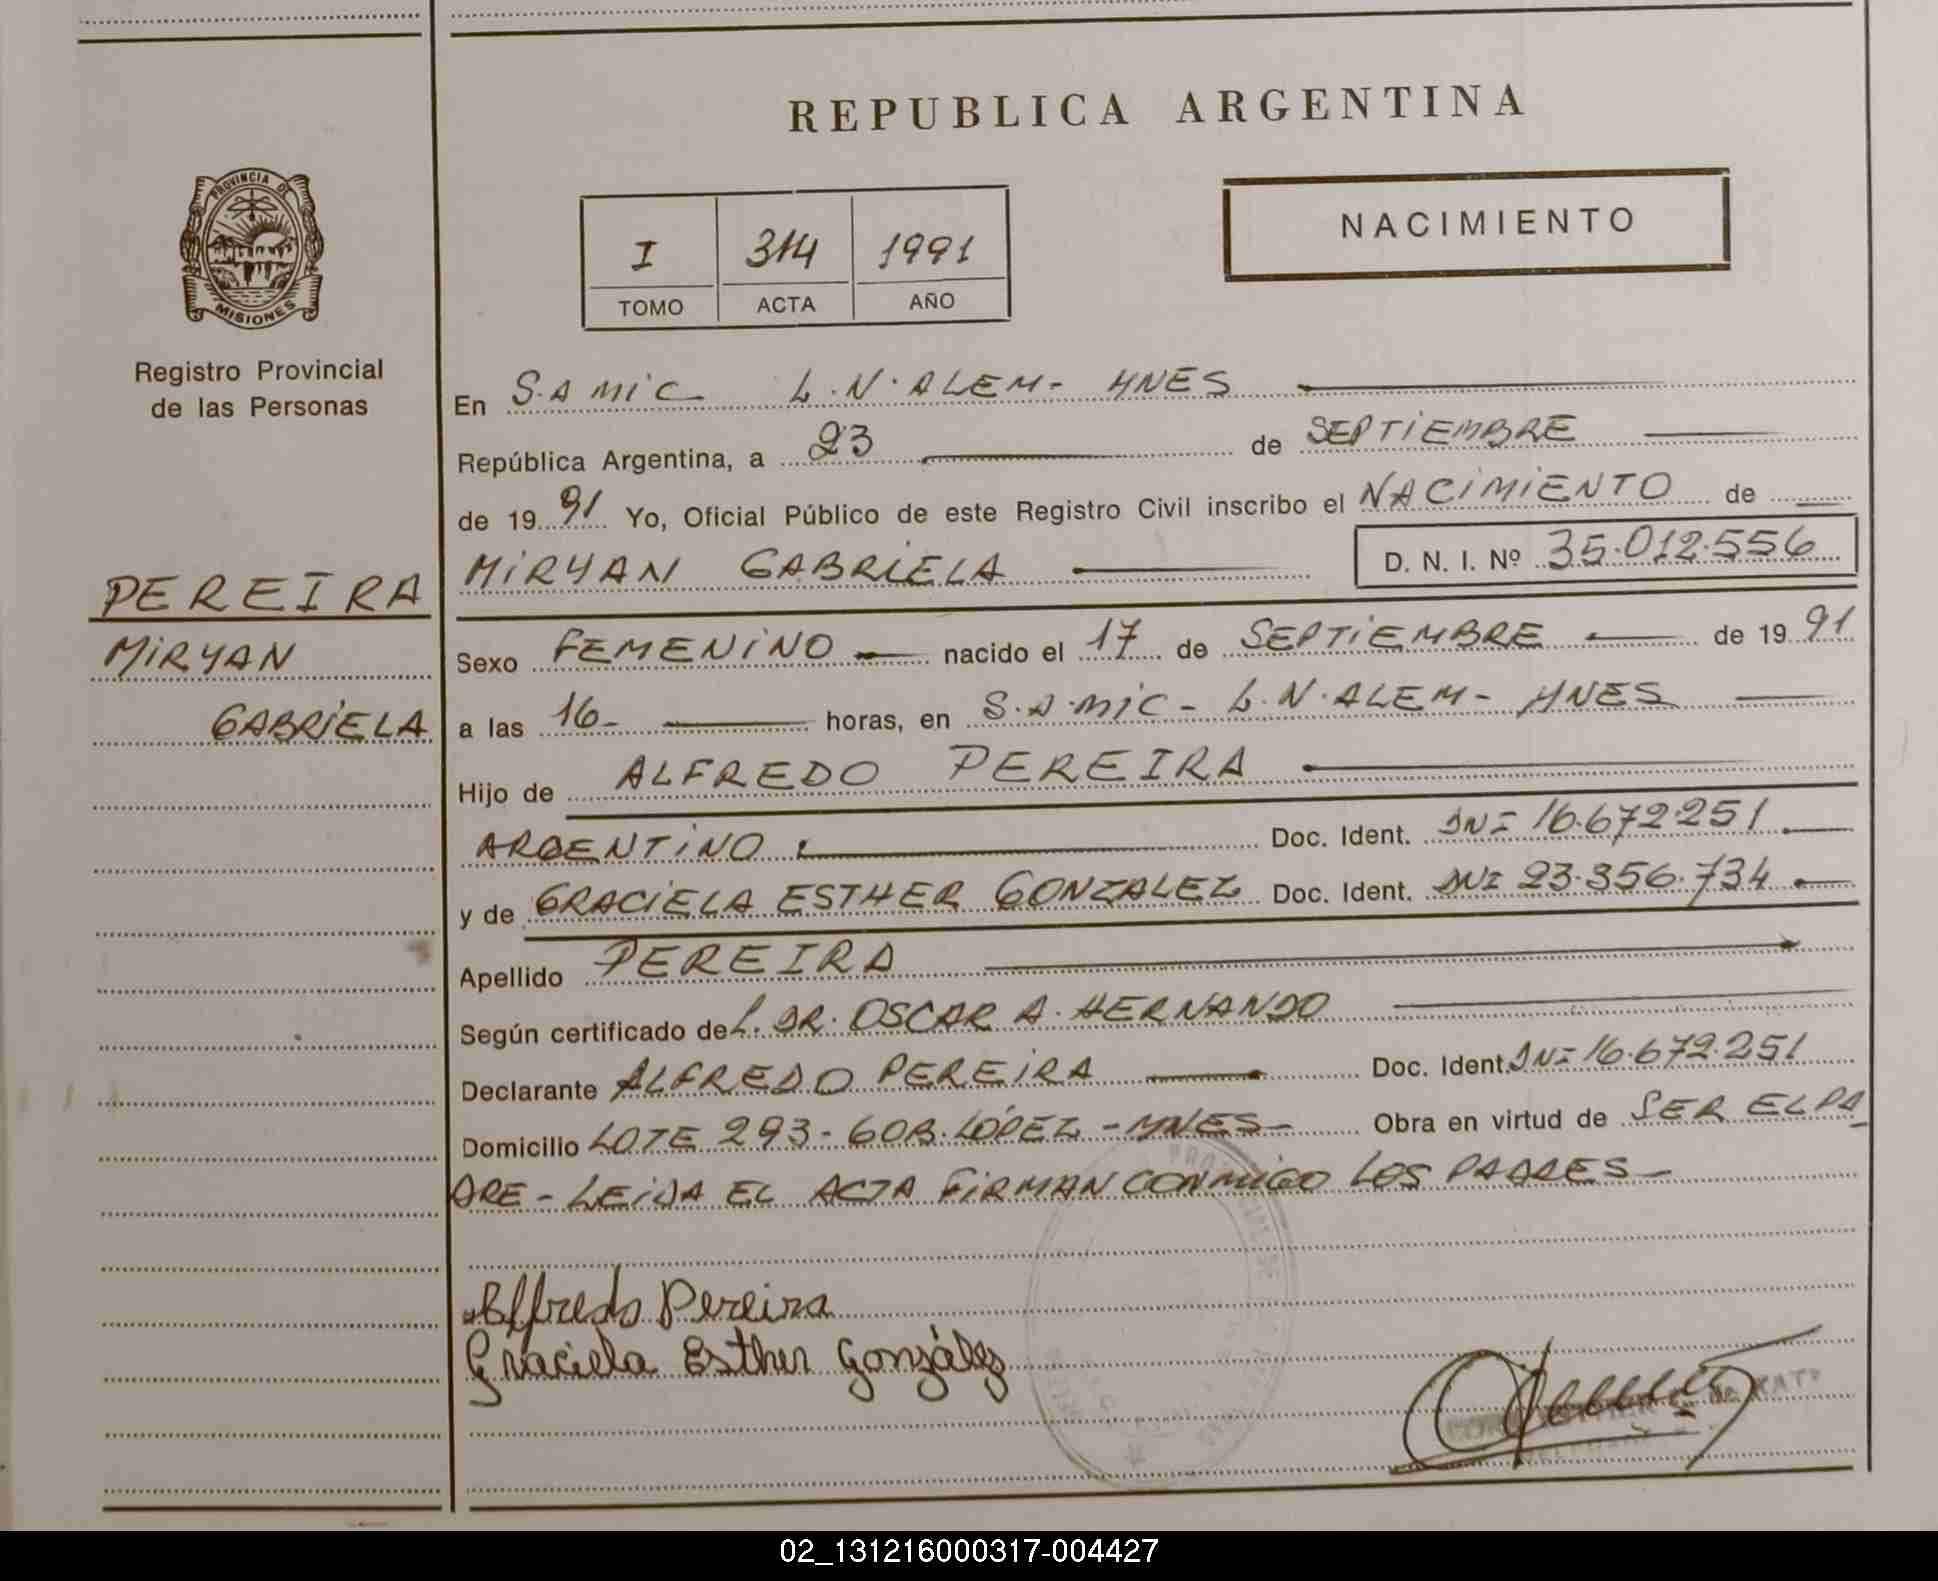 REPUBLICA ARGENTINA
PROVINCIA DE
MISIONES
Registro Provincial
de las Personas
NACIMIENTO
I 314 1991
TOMO ACTA AÑO
En S.A MIC L.N. ALEM- MNES
República Argentina, a 23 de SEPTIEMBRE
de 1991 Yo, Oficial Público de este Registro Civil inscribo el NACIMIENTO de
MIRYAN GABRIELA D. N. I. Nº 35.012.556
PEREIRA
MIRYAN
GABRIELA
Sexo FEMENINO nacido el 17 de SEPTIEMBRE de 1991
a las 16- horas, en S.A.MIC- L.N. ALEM- MNES
Hijo de ALFREDO PEREIRA
ARGENTINO Doc. Ident. DNI 16.672.251
y de GRACIELA ESTHER GONZALEZ Doc. Ident. DNI 23.356.734
Apellido PEREIRA
Según certificado del. DR. OSCAR A. HERNANDO
Declarante ALFREDO PEREIRA Doc. Ident. DNI 16.672.251
Domicilio LOTE 293- GOB. LÓPEZ - MNES- Obra en virtud de SER EL PA
DRE - LEIDA EL ACTA FIRMAN CONMIGO LOS PADRES-
Alfredo Pereira
Graciela Esther González
02_131216000317-004427